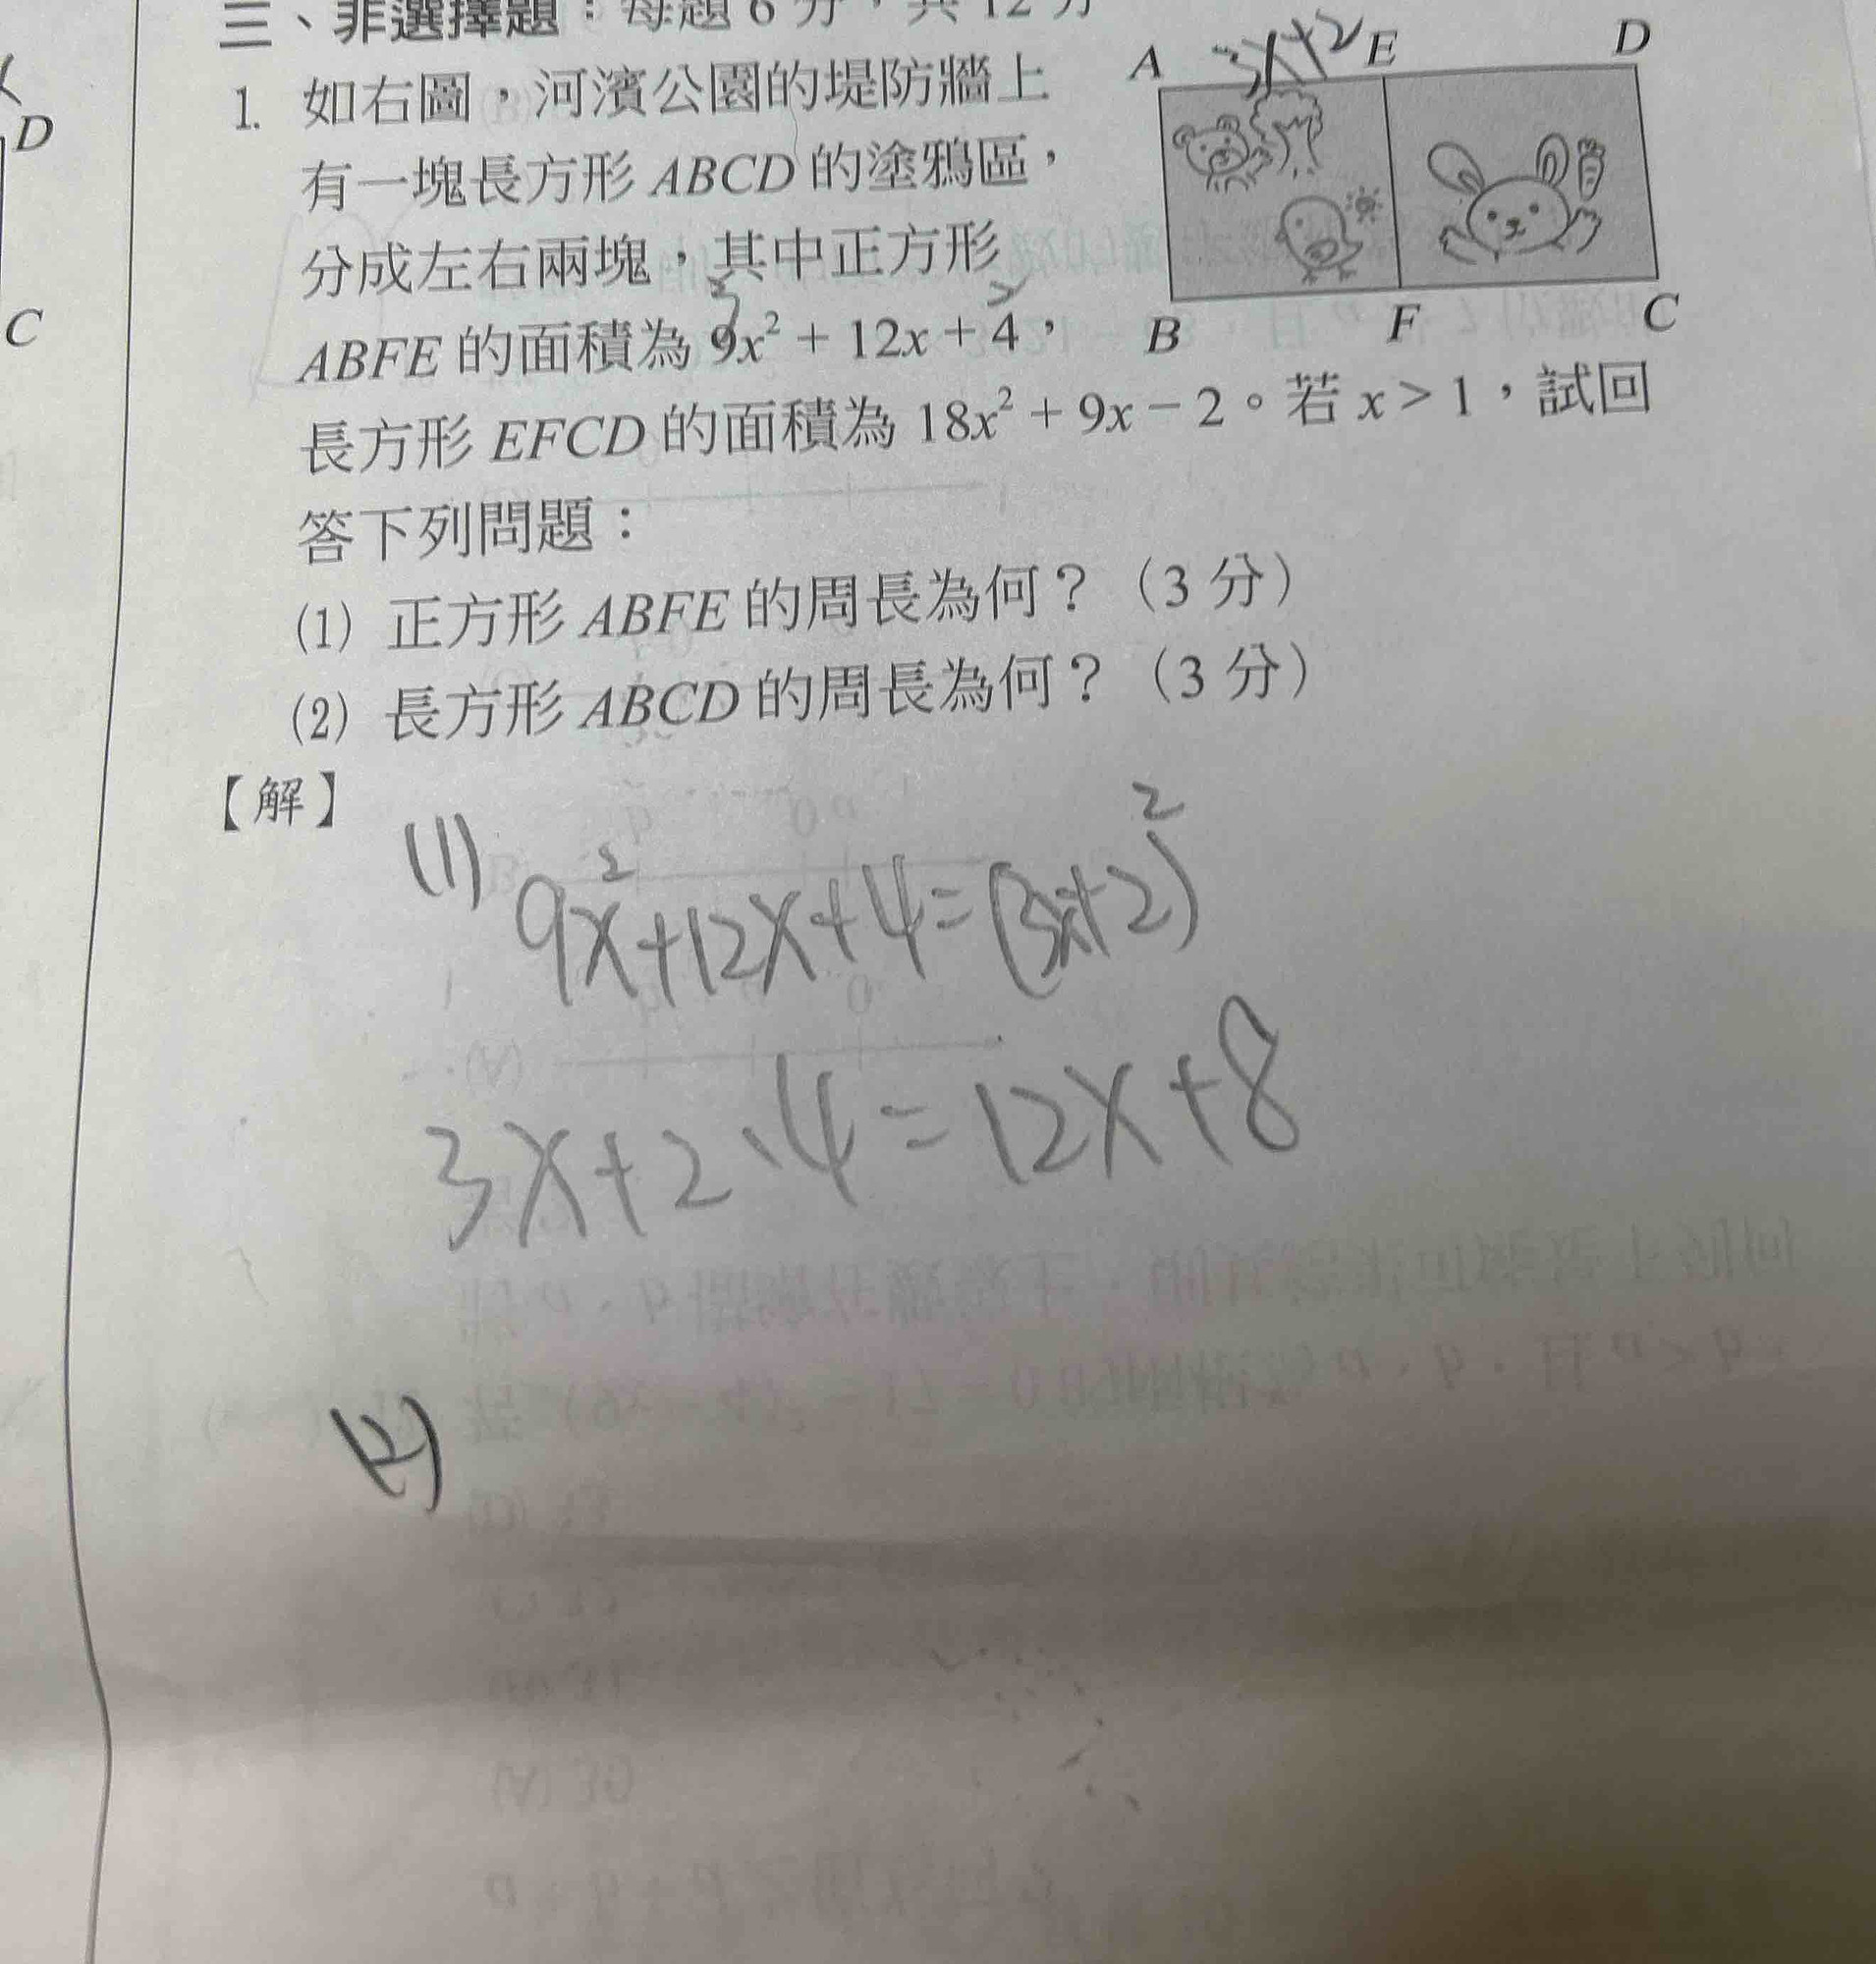 三、非選擇題：每題6分，共12分
1. 如右圖，河濱公園的堤防牆上
有一塊長方形ABCD的塗鴉區，
分成左右兩塊，其中正方形
ABFE的面積為9x²+12x+4，
長方形EFCD的面積為18x²+9x-2。若x>1，試回
答下列問題：
(1) 正方形ABFE的周長為何？（3分）
(2) 長方形ABCD的周長為何？（3分）
A 3x+2 E D
B F C
D
C
【解】
(1) 9x²+12x+4=(3x+2)²
3x+2·4=12x+8
(2)